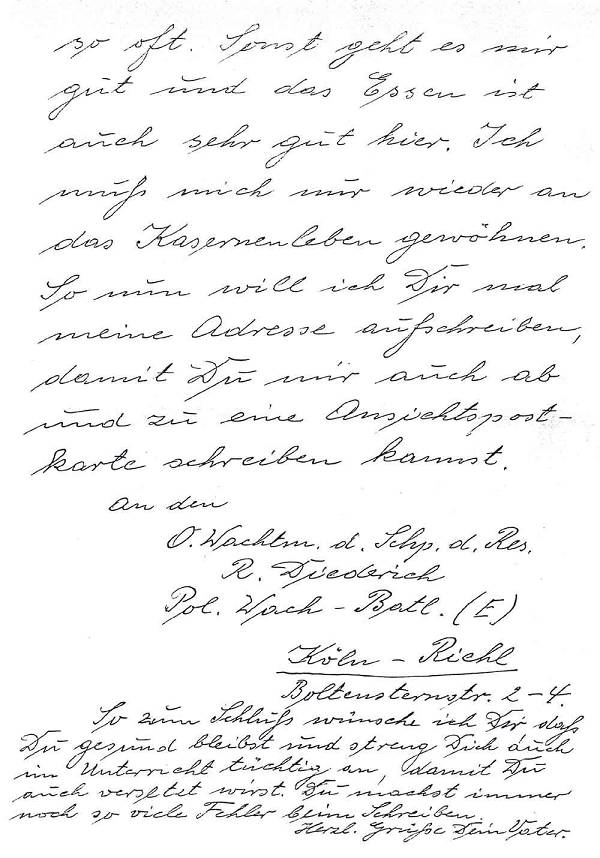 so oft. Sonst geht es mir
gut und das Essen ist
auch sehr gut hier. Ich
muß mich nur wieder an
das Kasernenleben gewöhnen.
So nun will ich Dir mal
meine Adresse aufschreiben,
damit Du mir auch ab
und zu eine Ansichtspost-
karte schreiben kannst.
An den
O. Wachtm. d. Schp. d. Res.
R. Diederich
Pol. Wach - Batl. (E)
Köln - Riehl
Boltensternstr. 2-4.
So zum Schluß wünsche ich Dir daß
Du gesund bleibst und streng Dich auch
im Unterricht tüchtig an, damit Du
auch versetzt wirst. Du machst immer
noch so viele Fehler beim Schreiben.
Herzl. Grüße Dein Vater.